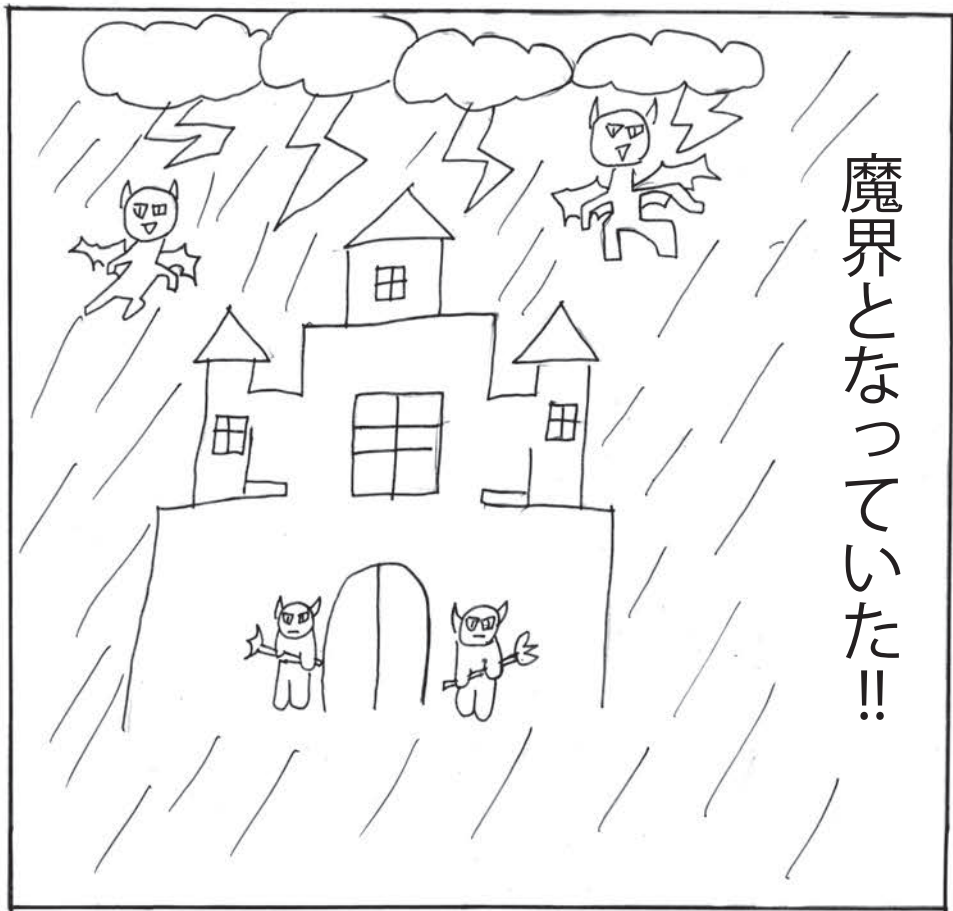 魔界となっていた!!